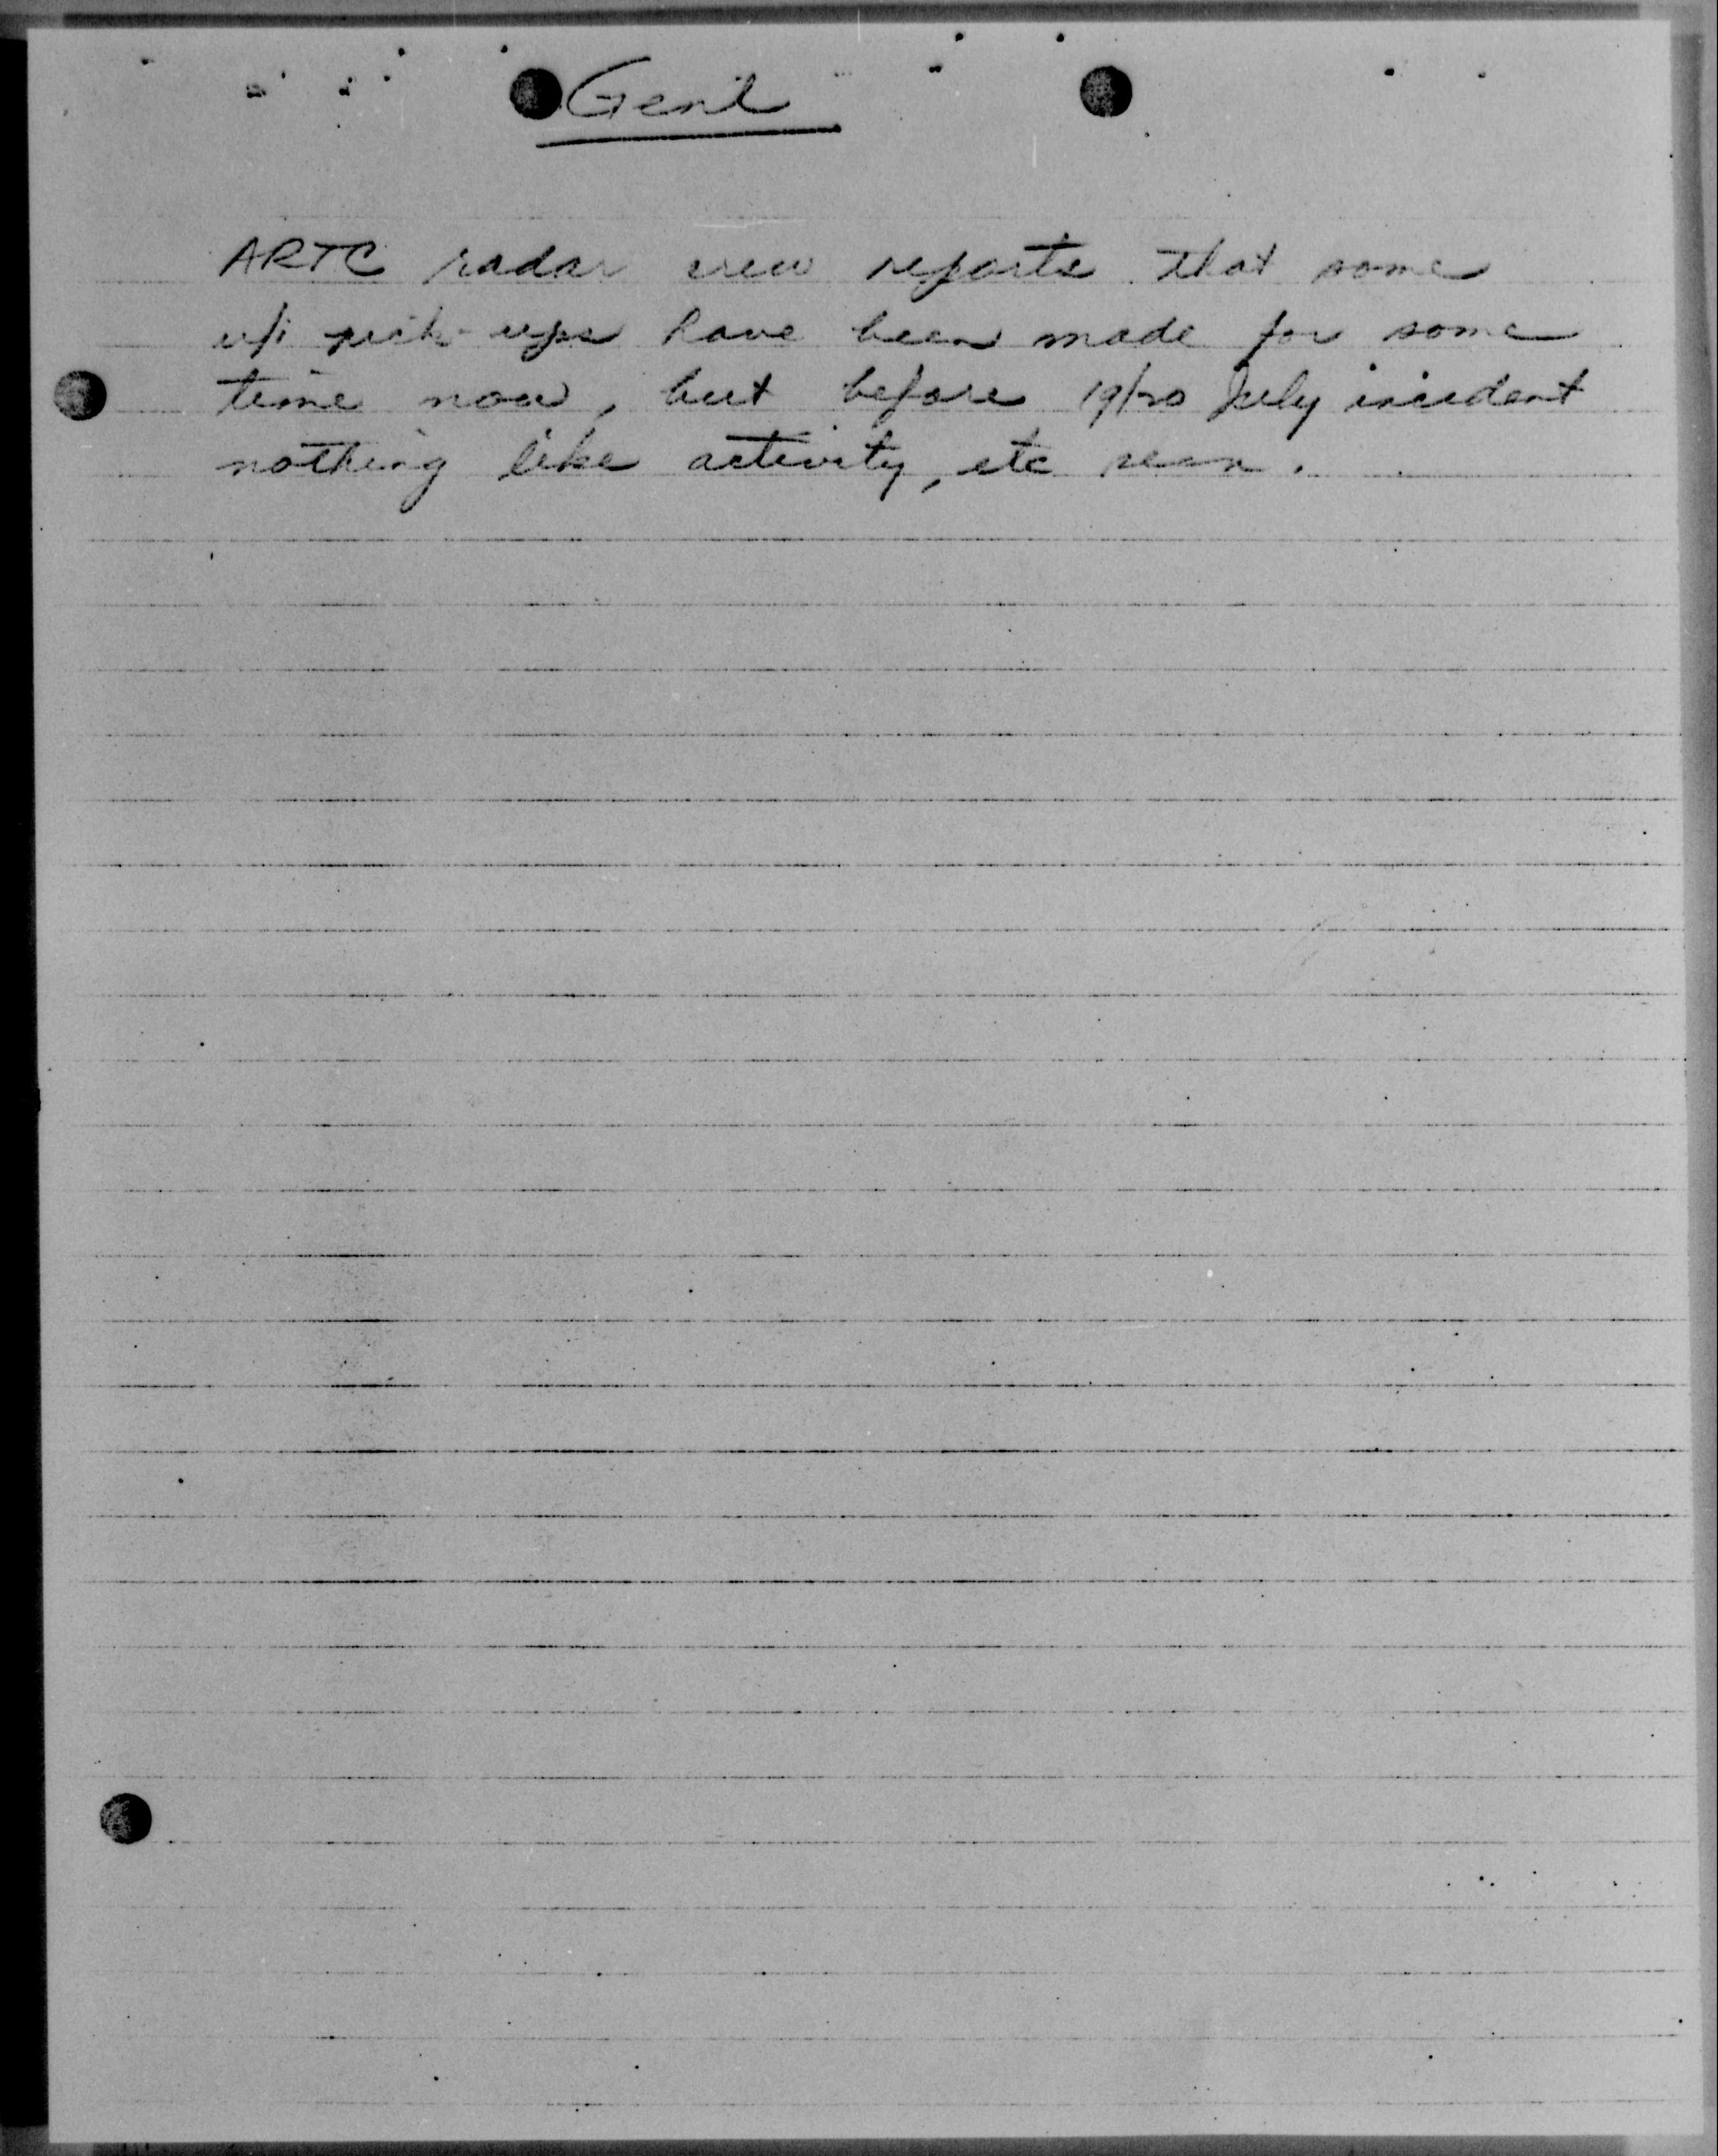 Genl
ARTC radar crew reports that some
u/i pick-ups have been made for some
time now, but before 19/20 July incident
nothing like activity, etc seen.